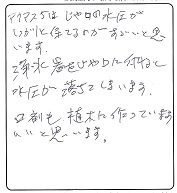 アクアスうは じゃ口の水圧が
いがいと保てるのがすごいと思
います。
浄水器をじゃ口に付けると
水圧が落ちてしまいます。
も植木に作っています
いいと思います。